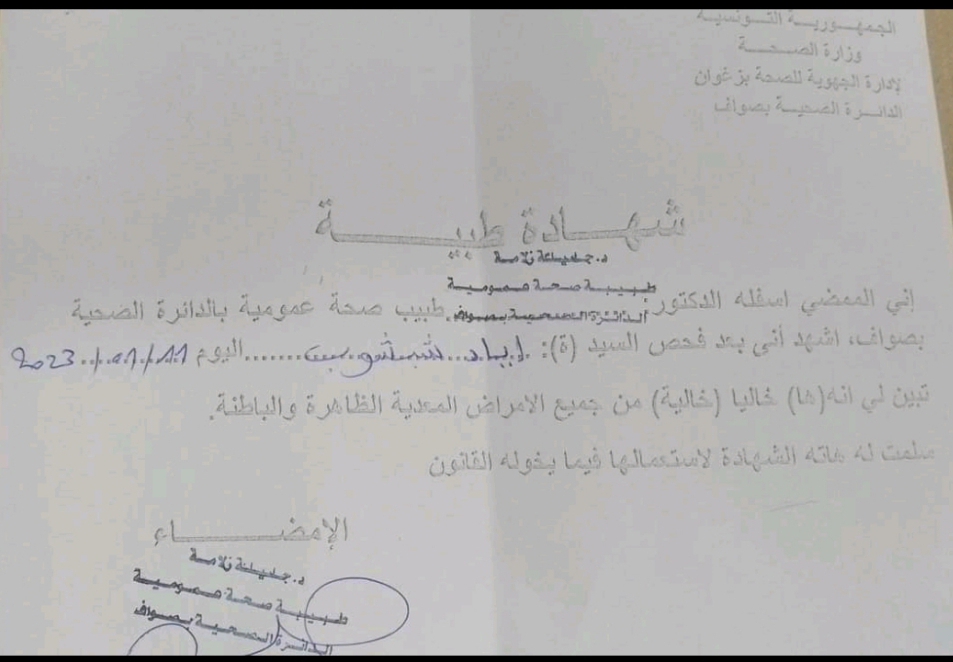 الجمهورية التونسية
وزارة الصحة
لإدارة الجهوية للصحة بزغوان
الدائرة الصحية بصواف
شهادة طبية
د. جليلة نلامة
طبيبة صحة عمومية
الدائرة الصحية بصواف
إني الممضي اسفله الدكتور طبيب صحة عمومية بالدائرة الصحية
بصواف، اشهد أني بعد فحص السيد (ة): إياد ....... اليوم 2023
تبين لي انه(ها) خاليا (خالية) من جميع الامراض المعدية الظاهرة والباطنة.
سلمت له هاته الشهادة لاستعمالها فيما يخوله القانون
الإمضاء
د. جليلة نلامة
طبيبة صحة عمومية
الدائرة الصحية بصواف